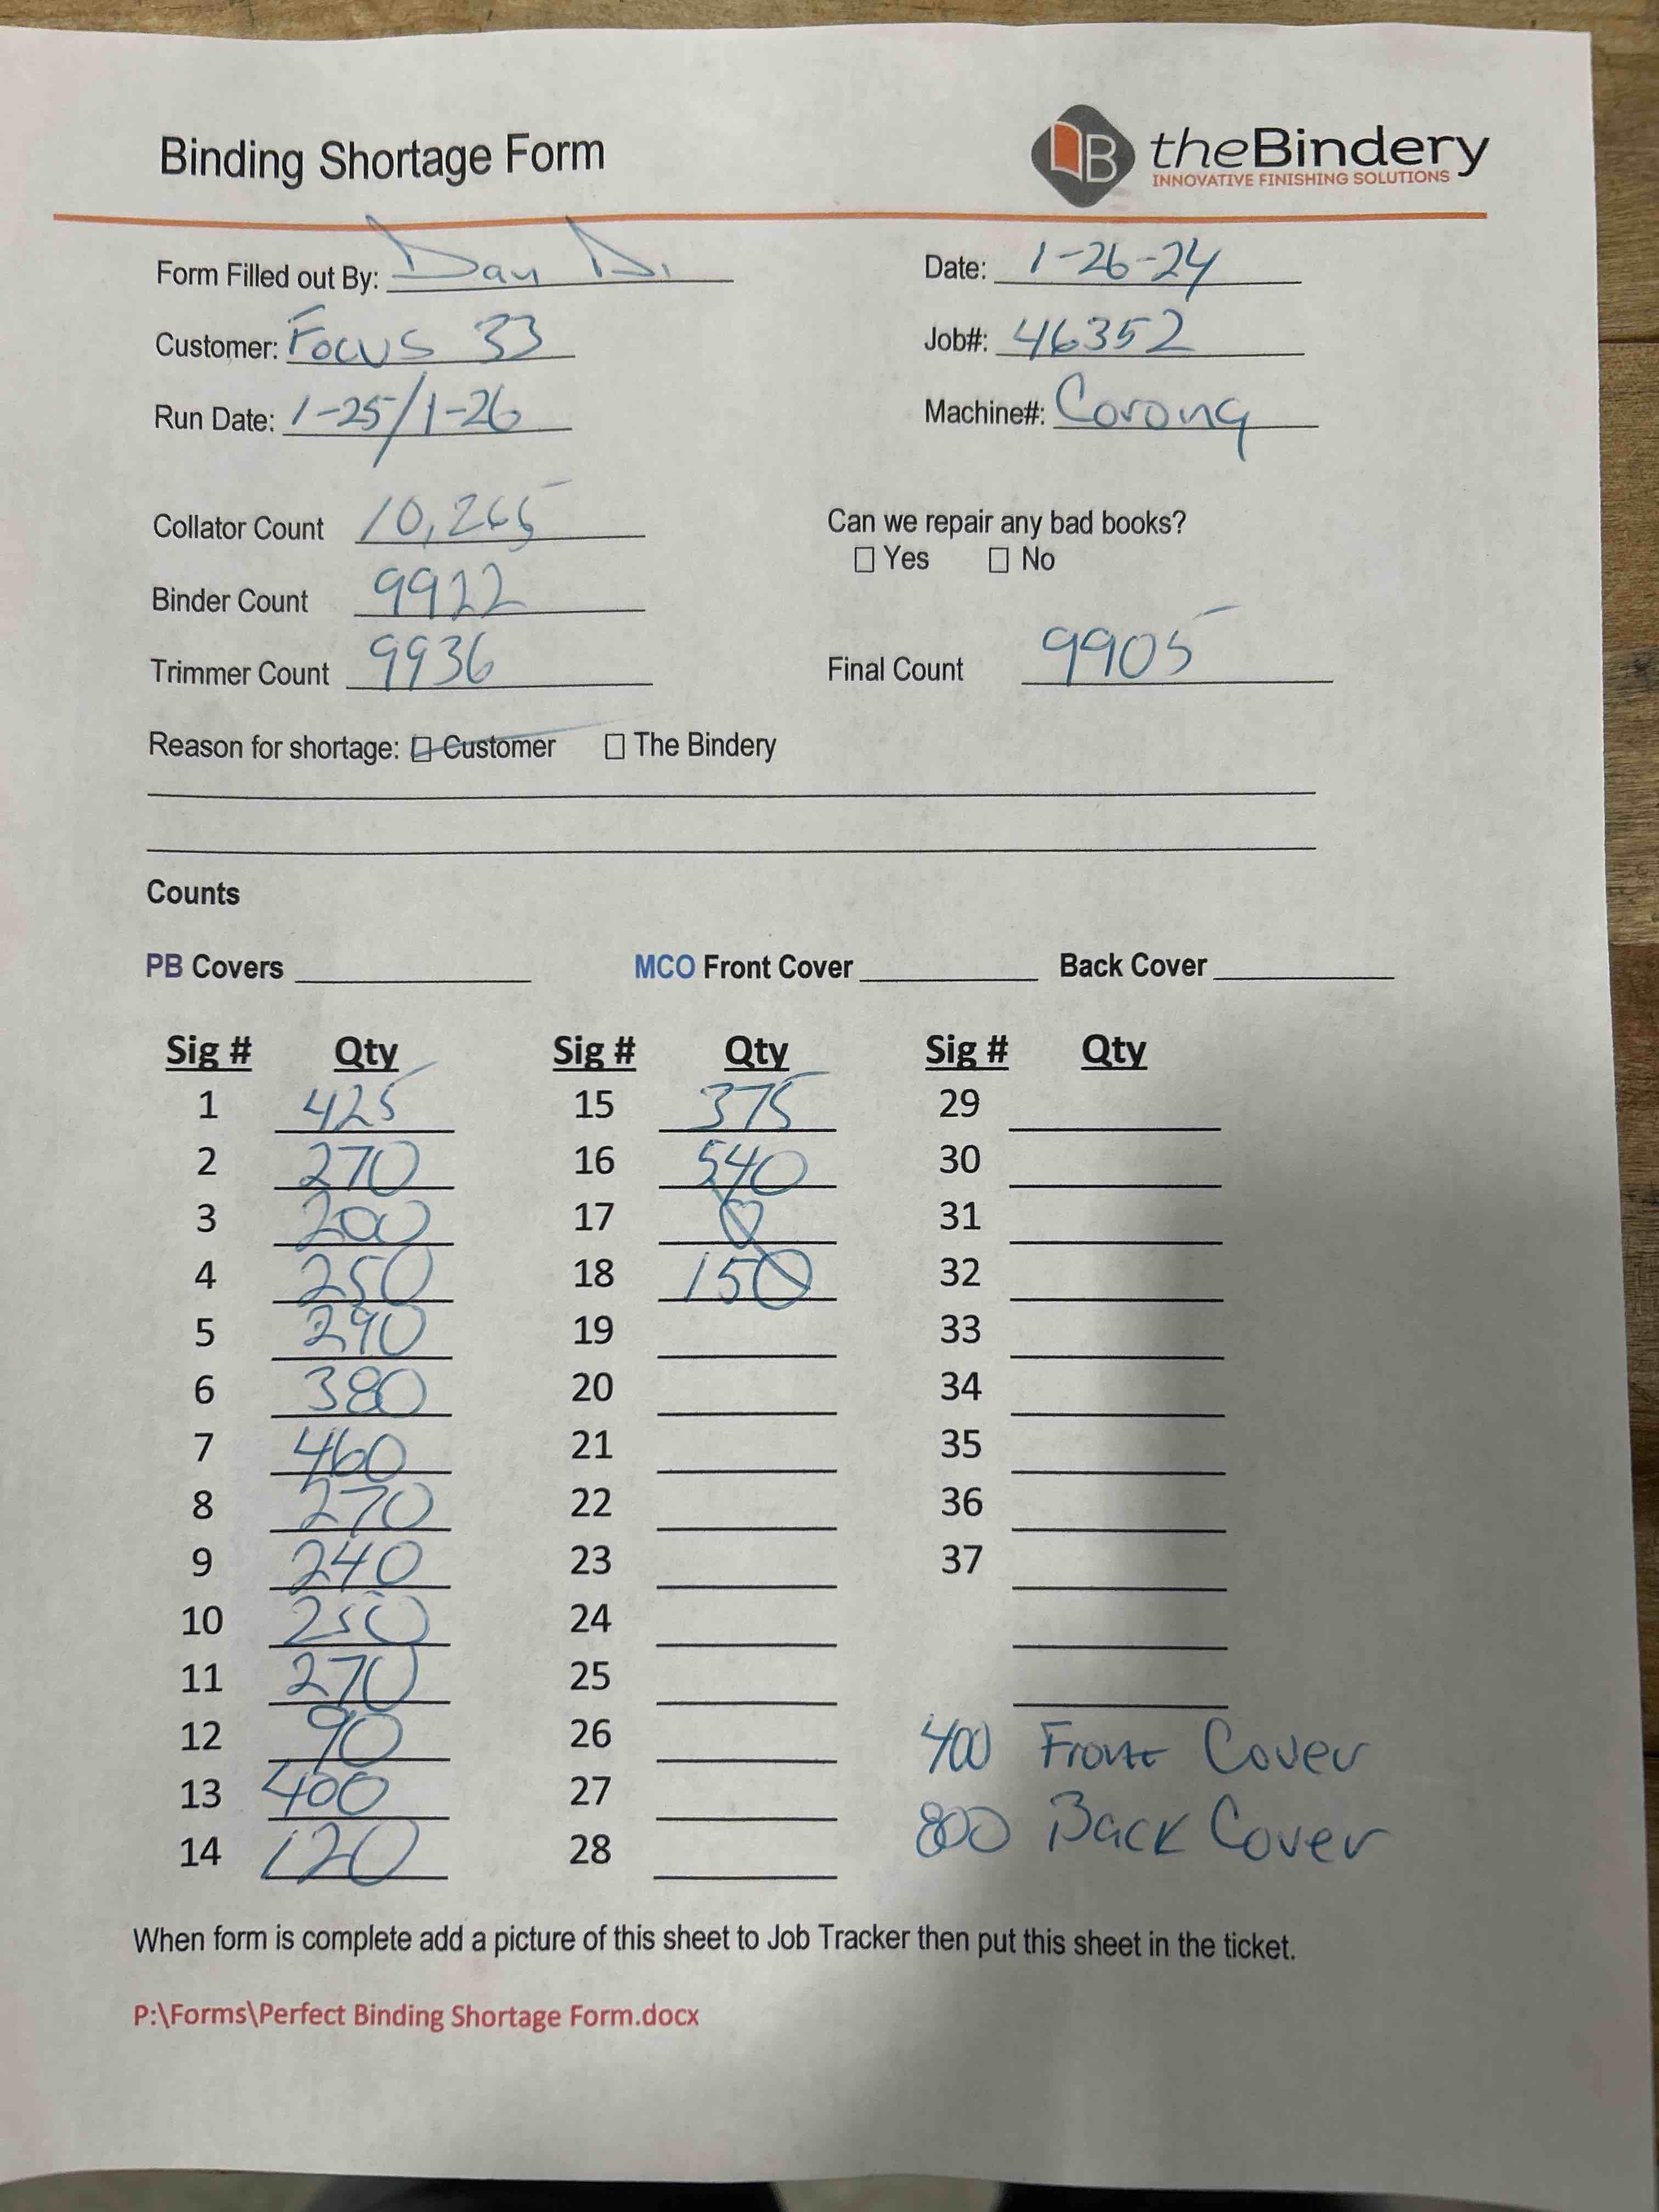 Binding Shortage Form
B theBindery
INNOVATIVE FINISHING SOLUTIONS
Form Filled out By: Dan D. Date: 1-26-24
Customer: Focus 33 Job#: 46352
Run Date: 1-25/1-26 Machine#: Corona
Collator Count 10,265 Can we repair any bad books?
☐ Yes ☐ No
Binder Count 9922
Trimmer Count 9936 Final Count 9905
Reason for shortage: ☐ Customer ☐ The Bindery
Counts
PB Covers MCO Front Cover Back Cover
Sig # Qty Sig # Qty Sig # Qty
1 425 15 375 29
2 270 16 540 30
3 200 17 0 31
4 250 18 150 32
5 290 19 33
6 380 20 34
7 460 21 35
8 270 22 36
9 240 23 37
10 250 24
11 270 25
12 90 26 400 Front Cover
13 400 27
14 120 28 800 Back Cover
When form is complete add a picture of this sheet to Job Tracker then put this sheet in the ticket.
P:\Forms\Perfect Binding Shortage Form.docx